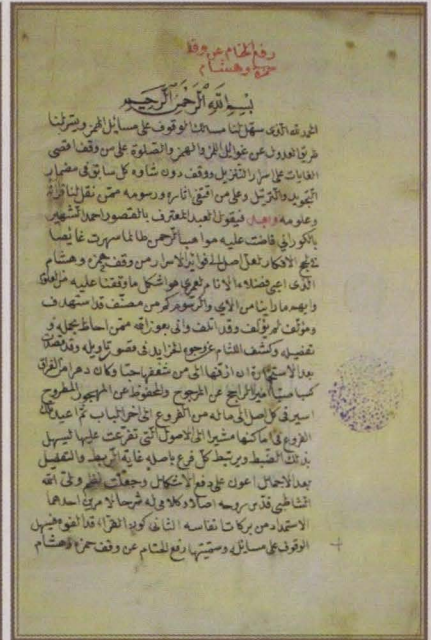 رفع الختام عن وقف
حمزة وهشام
بسم الله الرحمن الرحيم
الحمد لله الذي سهل لنا مسائلنا لوقوف على مسائل الهمز ويسر لنا
طريق العدول عن غوائل اللمز والهمز والصلوة على من وقف اقصى
الغايات على اسرار التنزيل ووقف دون شاوه كل سابق في مضمار
التجويد والترتيل وعلى من اقتفى اثاره ورسومه ممن نقل لنا قراة
وعلومه وبعد فيقول العبد المعترف بالقصور احمد الشهير
بالكوراني فاضت عليه مواهب الرحمن طالما سهرت غايصا
الافكار اصل الى فوائد الاسرار من وقف حمزة وهشام
الذي اعيى فضلاء الانام لعمري هو اشكل ما وقفنا عليه
وابهم ما راينا من الاي والرسوم كم من مصنف قد استهدف
ومؤلف لم يؤلف وقد اتلف واني بعون الله ممن احاط بجمله و
تفصيله وكشف اللثام عن وجوه الخرايد في قصور تاويله وقد
بعد الاستخارة ان ازفها الى من شغفها حبا وكان دهرا من الفراق
كئيبا صبا اميز الراجح عن المرجوح والمحفوظ عن المهجور المطروح
اسير في كل اصل الى ماله من الفروع الى اخر الباب ثم اعيد
الفروع في اماكنها مشيرا الى الاصول التي تفرعت عليها ليسهل
بذلك الضبط ويرتبط كل فرع باصله غاية الربط والتفصيل
بعد الاجمال اعون على دفع الاشكال وجعلت نظم ولي الله
الشاطبي قدس روحه اصلا وكلامي له شرحا لامرين احدهما
الاستمداد من بركات انفاسه الثاني كون القراء قد الفوه فيسهل
الوقوف على مسائله وسميتها رفع الختام عن وقف حمزة وهشام